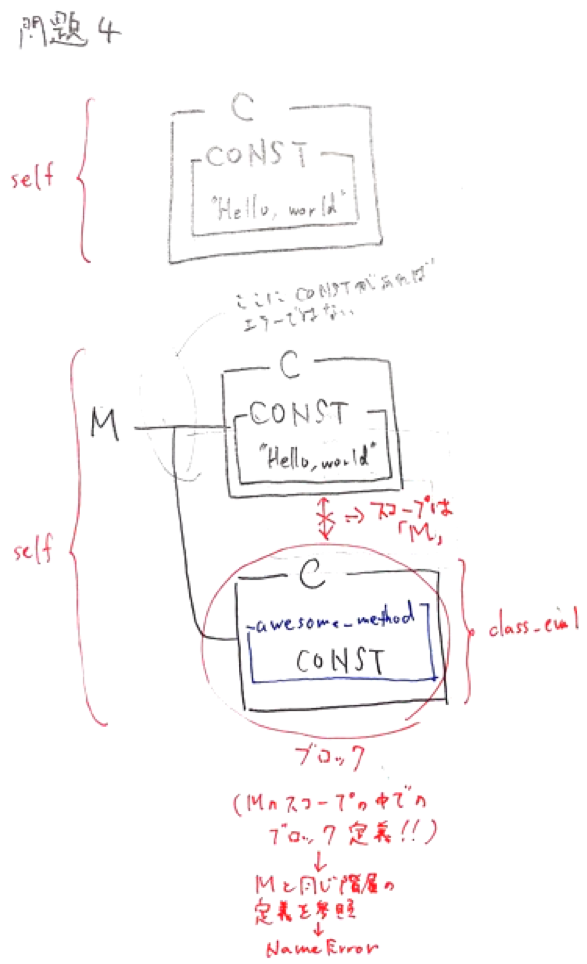 問題 4
C
self
CONST
"Hello, world"
ここに CONST があれば
エラーではない
C
M
CONST
"Hello, world"
⇒ スコープは
「M」
self
C
awesome_method
class_eval
CONST
ブロック
(Mのスコープの中での
ブロック定義!!)
↓
Mと同じ階層の
定義を参照
↓
NameError